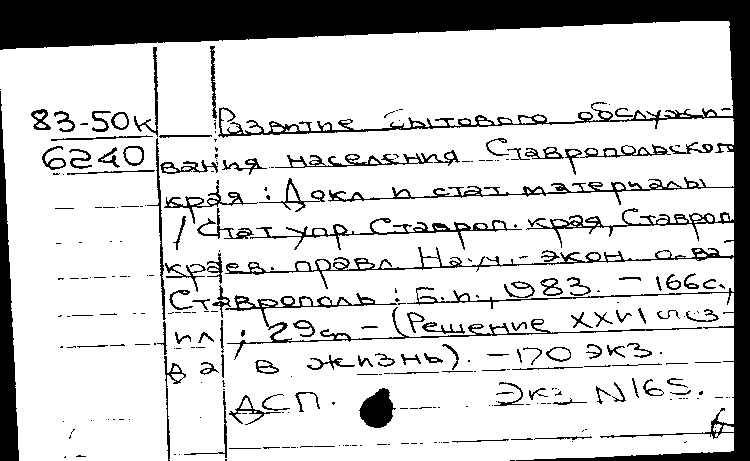 83-50к Развитие бытового обслужи-
6240 вания населения Ставропольского
края : Докл. и стат. материалы
/ Стат упр. Ставроп. края, Ставроп
краев. правл. Науч.-экон. о-ва.
Ставрополь : Б.и., 1983. – 166с.,
ил ; 29см – (Решение XXVI съез-
да в жизнь). – 170 экз.
ДСП. Экз N165.